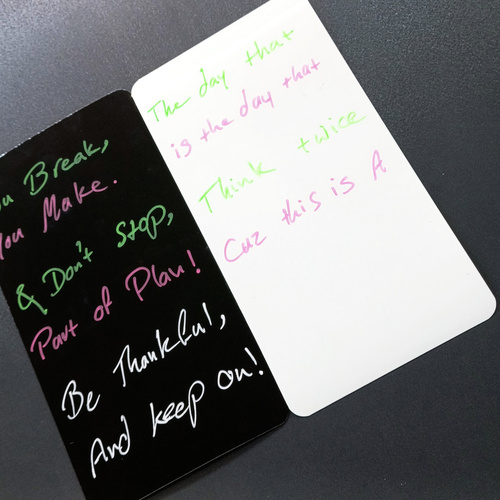 ou Break,
You Make.
& Don't Stop,
Part of Plan!
Be Thankful,
And keep on!
The day that
is the day that
Think twice
Cuz this is A